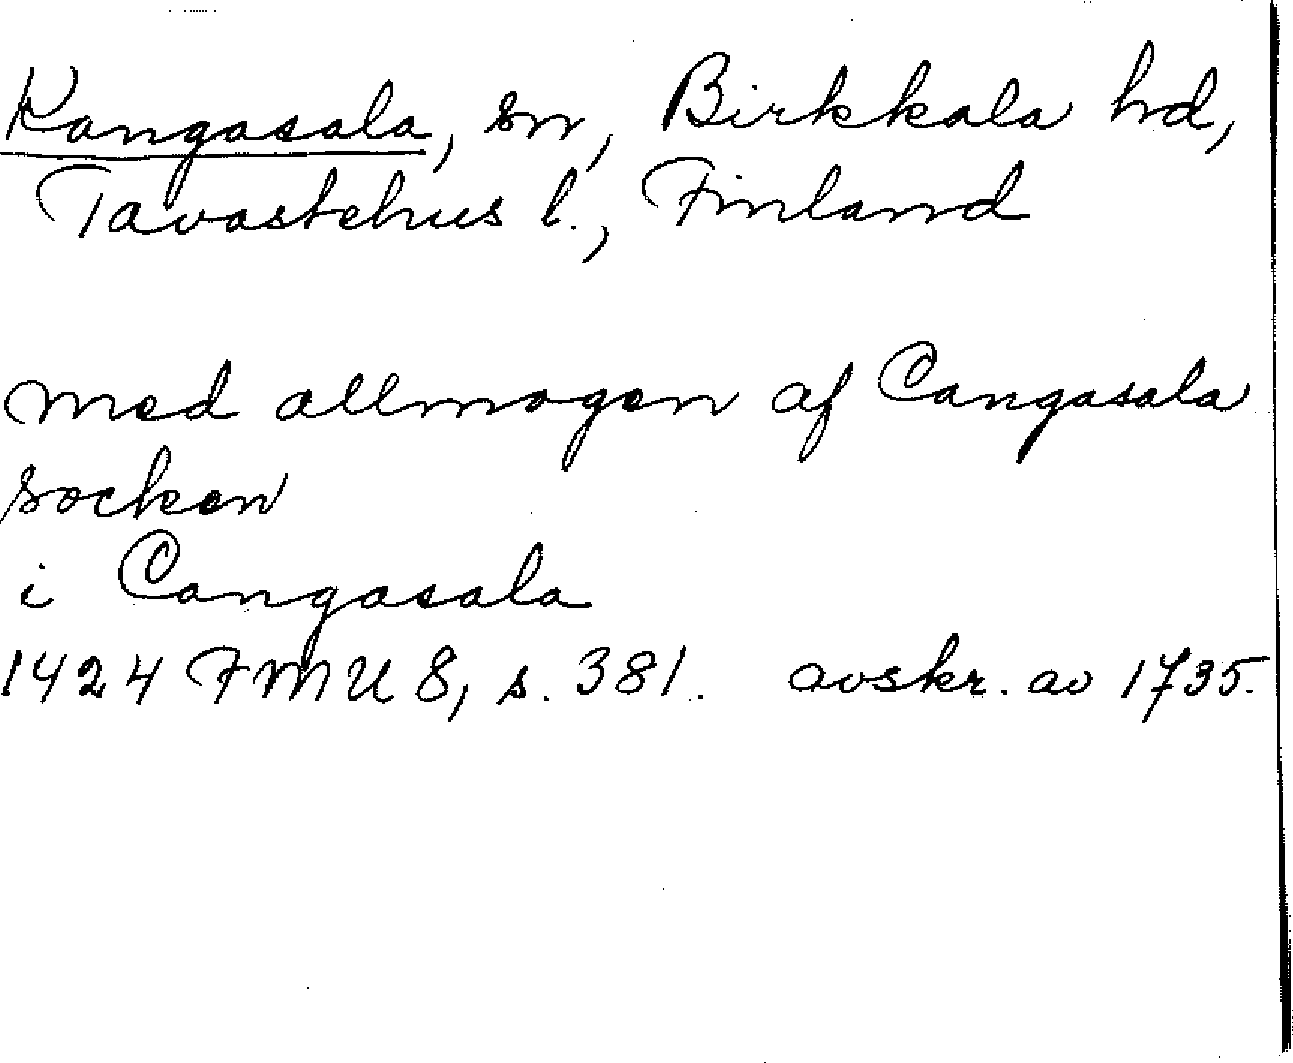 Kangasala, sn, Birkkala hd,
Tavastehus l., Finland
med allmogen af Cangasala
socken
i Cangasala
1424 FMU 8, s. 381. avskr. av 1735.